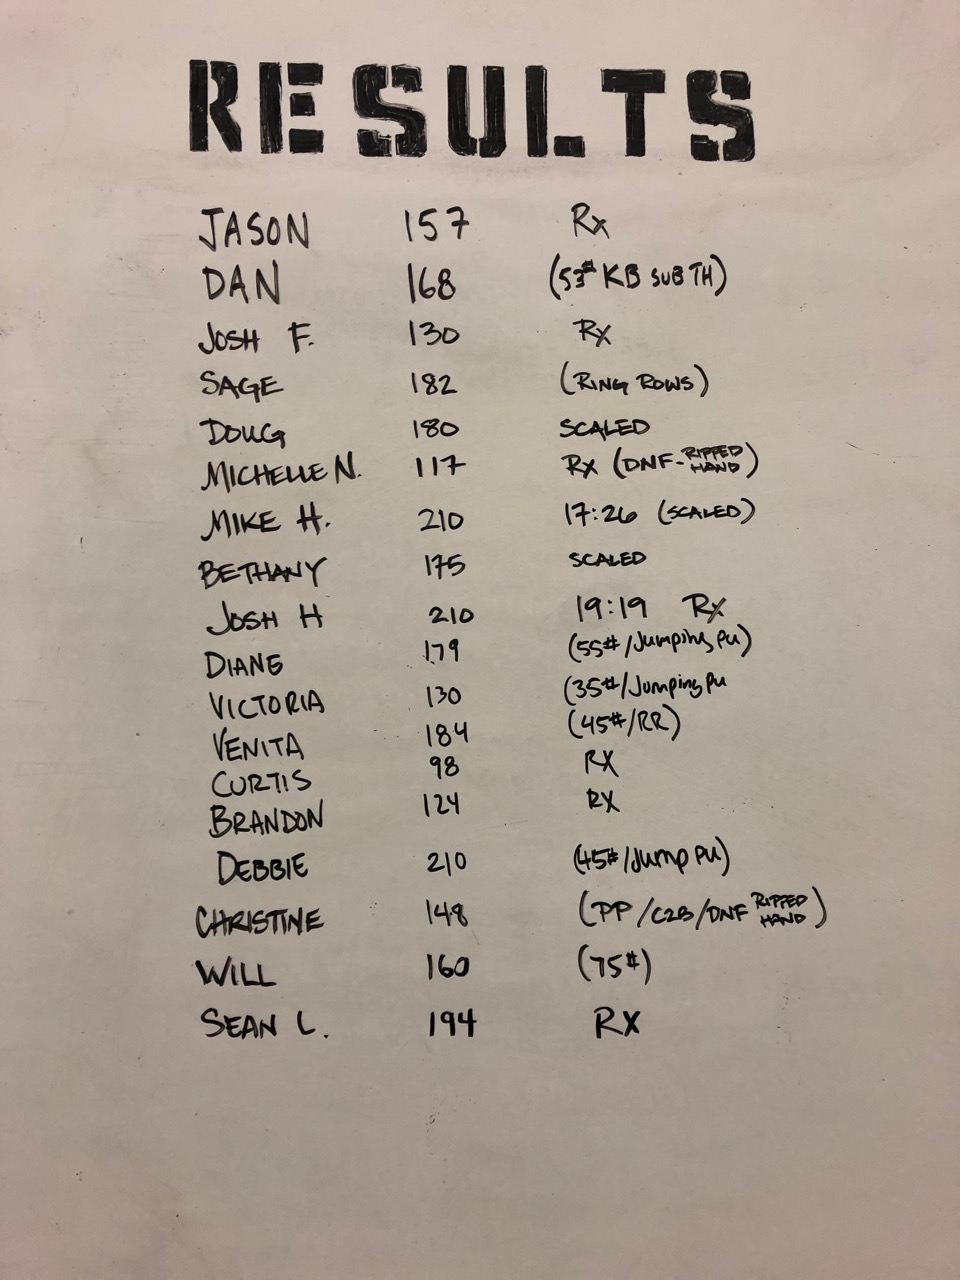 RESULTS
JASON 157 Rx
DAN 168 (53# KB SUB TH)
JOSH F. 130 Rx
SAGE 182 (RING ROWS)
DOUG 180 SCALED
MICHELLE N. 117 Rx (DNF-RIPPED HAND)
MIKE H. 210 17:26 (SCALED)
BETHANY 175 SCALED
JOSH H 210 19:19 Rx
DIANE 179 (55#/Jumping PU)
VICTORIA 130 (35#/Jumping PU
VENITA 184 (45#/RR)
CURTIS 98 RX
BRANDON 124 RX
DEBBIE 210 (45#/Jump PU)
CHRISTINE 148 (PP/C2B/DNF RIPPED HAND)
WILL 160 (75#)
SEAN L. 194 RX